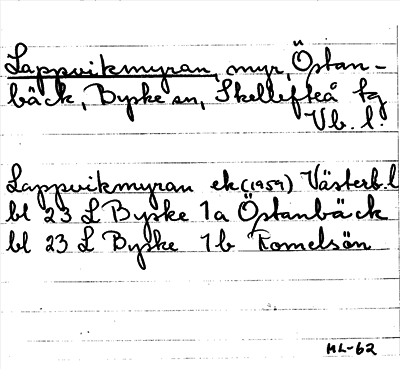 Lappvikmyran, myr, Östan-
bäck, Byske sn, Skellefteå tg
Vb. l.
Lappvikmyran ek (1959) Västerb. l
bl 23 L Byske 1a Östanbäck
bl 23 L Byske 1b Romelsön
HL-62